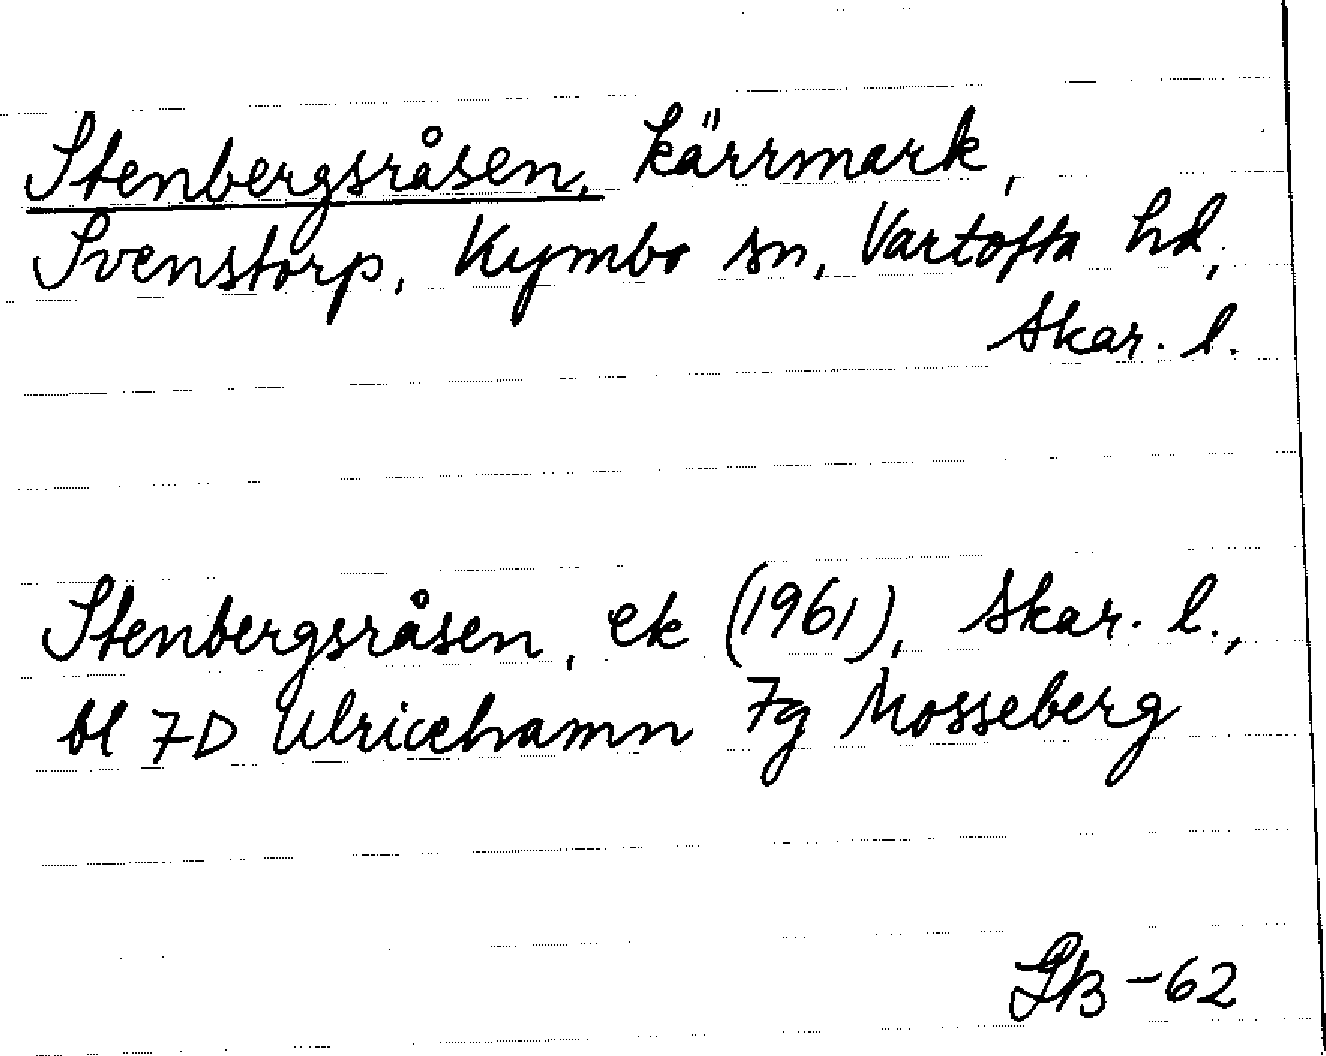 Stenbergsråsen, kärrmark,
Svenstorp, Kymbo sn, Vartofta hd,
Skar. l.
Stenbergsråsen, ek (1961), Skar. l.,
bl 7D Ulricehamn 7g Mosseberg
-62